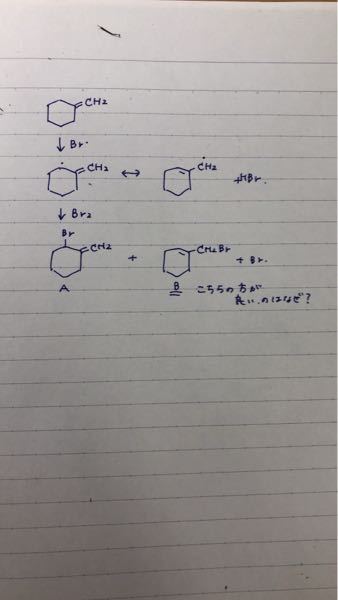 CH2
↓ Br・
CH2 ↔ CH2 + HBr.
↓ Br2
Br
CH2 + CH2Br + Br・
A B こちらの方が
良いのはなぜ?